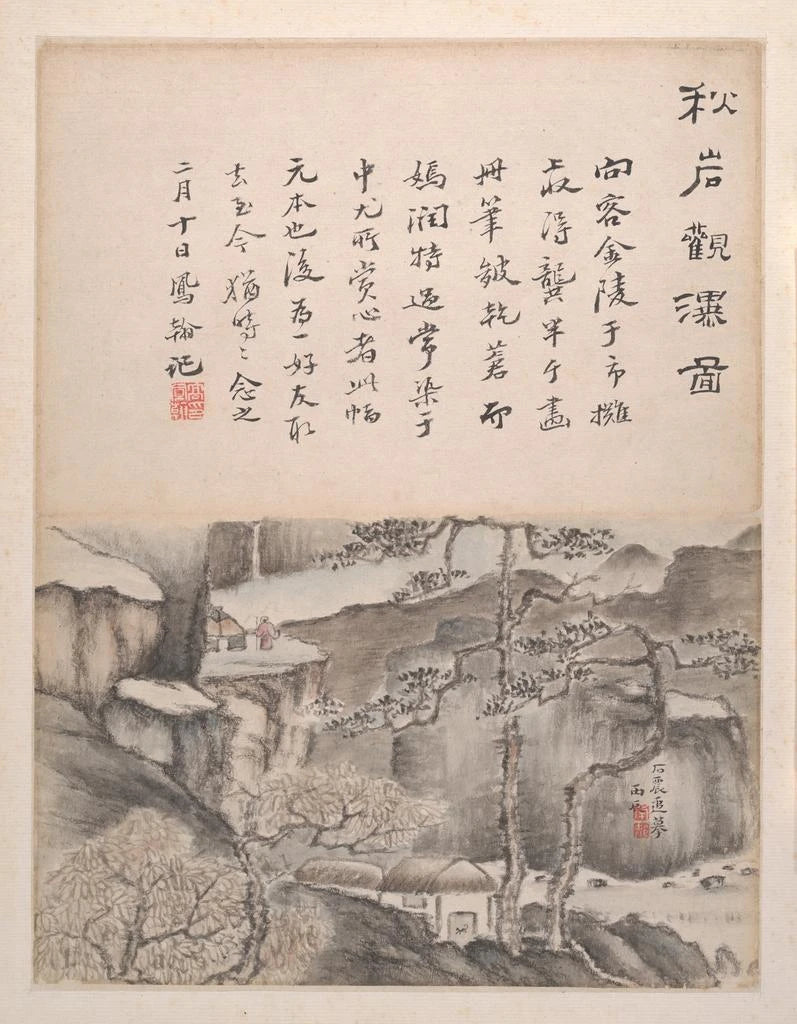 秋岩觀瀑啚
向客金陵于市攤
収得龔半千畫
冊筆皴乾蒼而
嫣潤特過常染于
中尤所賞心者此幅
元本也後為一好友取
去至今猶時〻念之
二月十日鳳翰記
高鳳翰印
石震追摹
丙辰